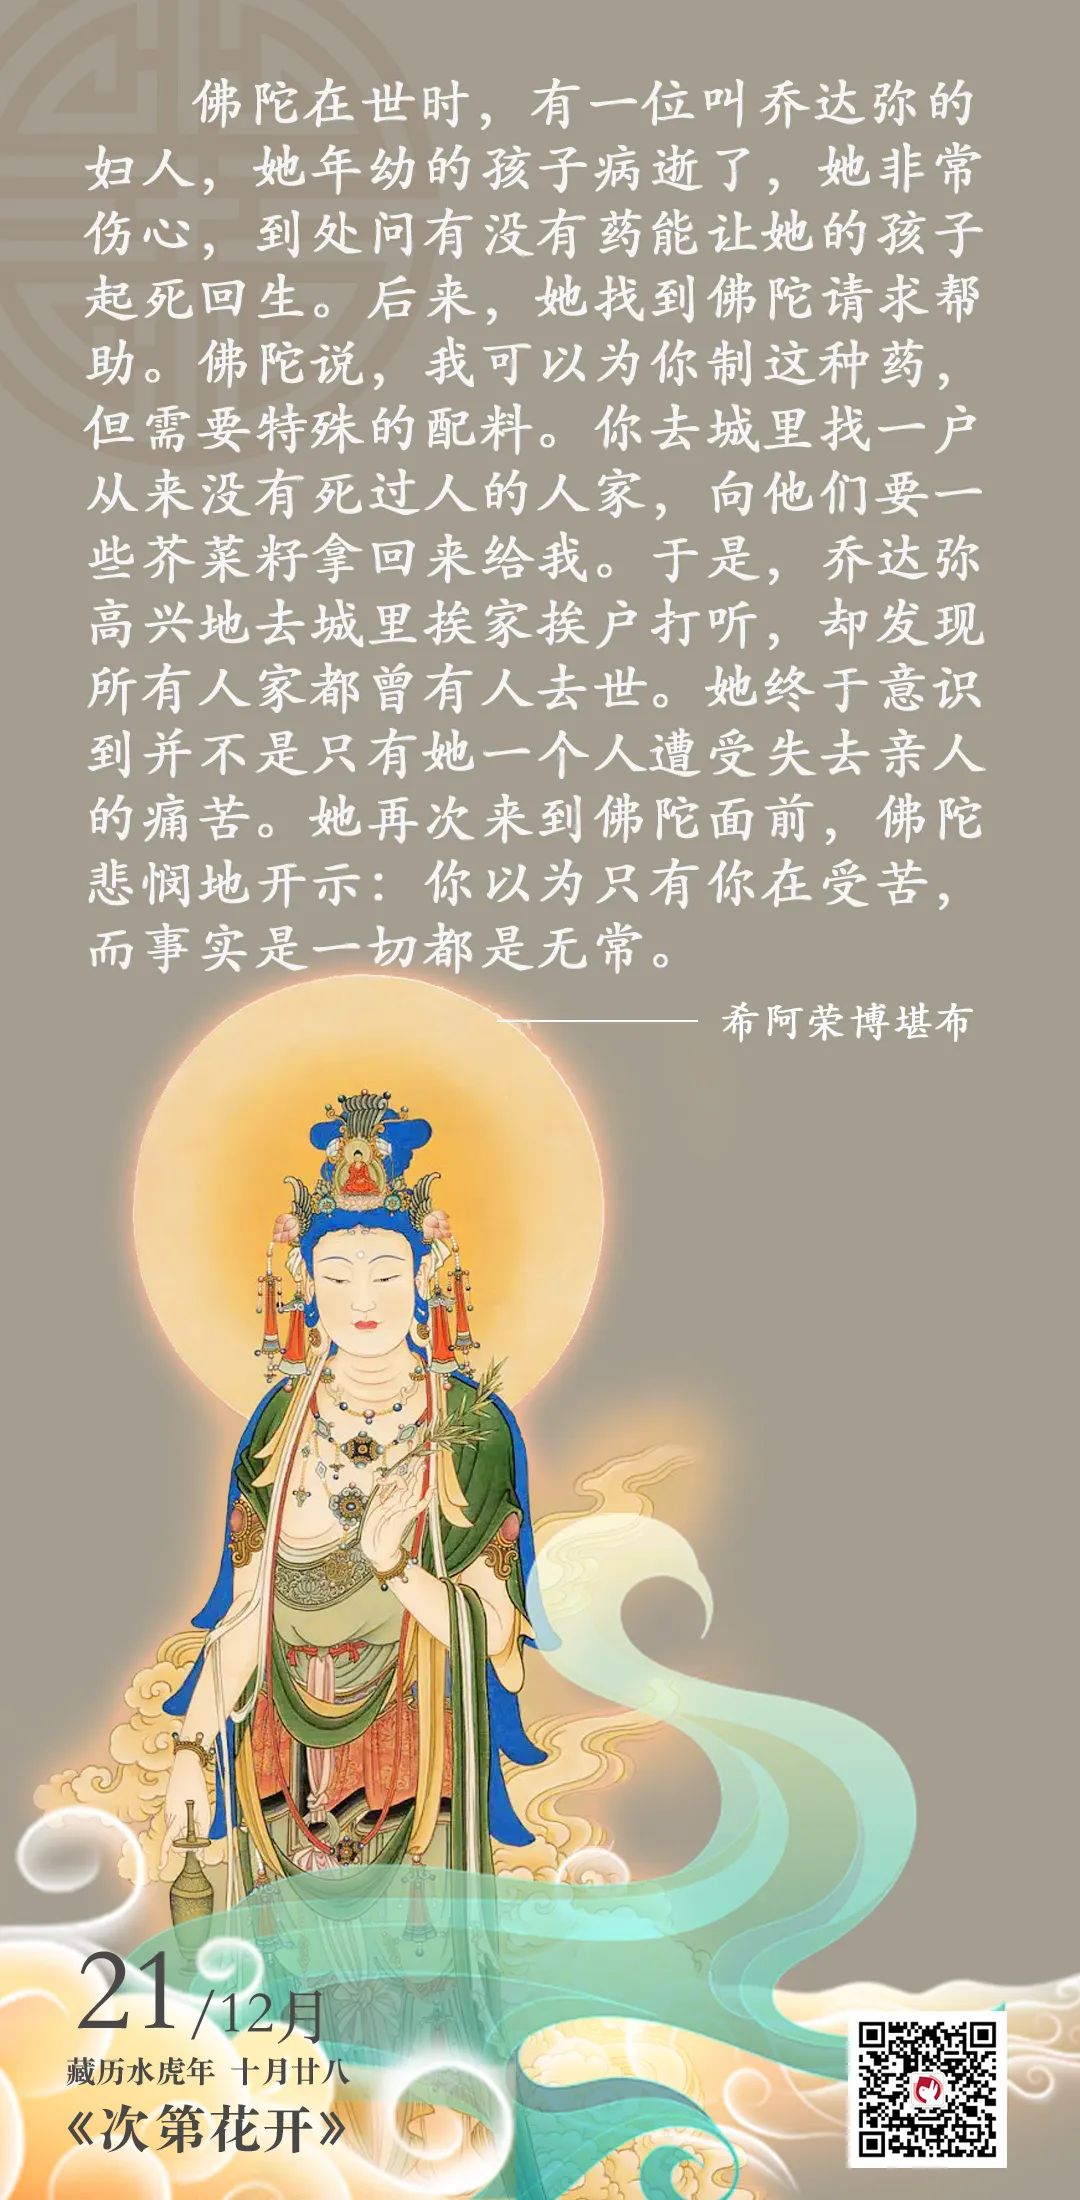 佛陀在世时，有一位叫乔达弥的
妇人，她年幼的孩子病逝了，她非常
伤心，到处问有没有药能让她的孩子
起死回生。后来，她找到佛陀请求帮
助。佛陀说，我可以为你制这种药，
但需要特殊的配料。你去城里找一户
从来没有死过人的人家，向他们要一
些芥菜籽拿回来给我。于是，乔达弥
高兴地去城里挨家挨户打听，却发现
所有人家都曾有人去世。她终于意识
到并不是只有她一个人遭受失去亲人
的痛苦。她再次来到佛陀面前，佛陀
悲悯地开示：你以为只有你在受苦，
而事实是一切都是无常。
——希阿荣博堪布
21/12月
藏历水虎年 十月廿八
《次第花开》